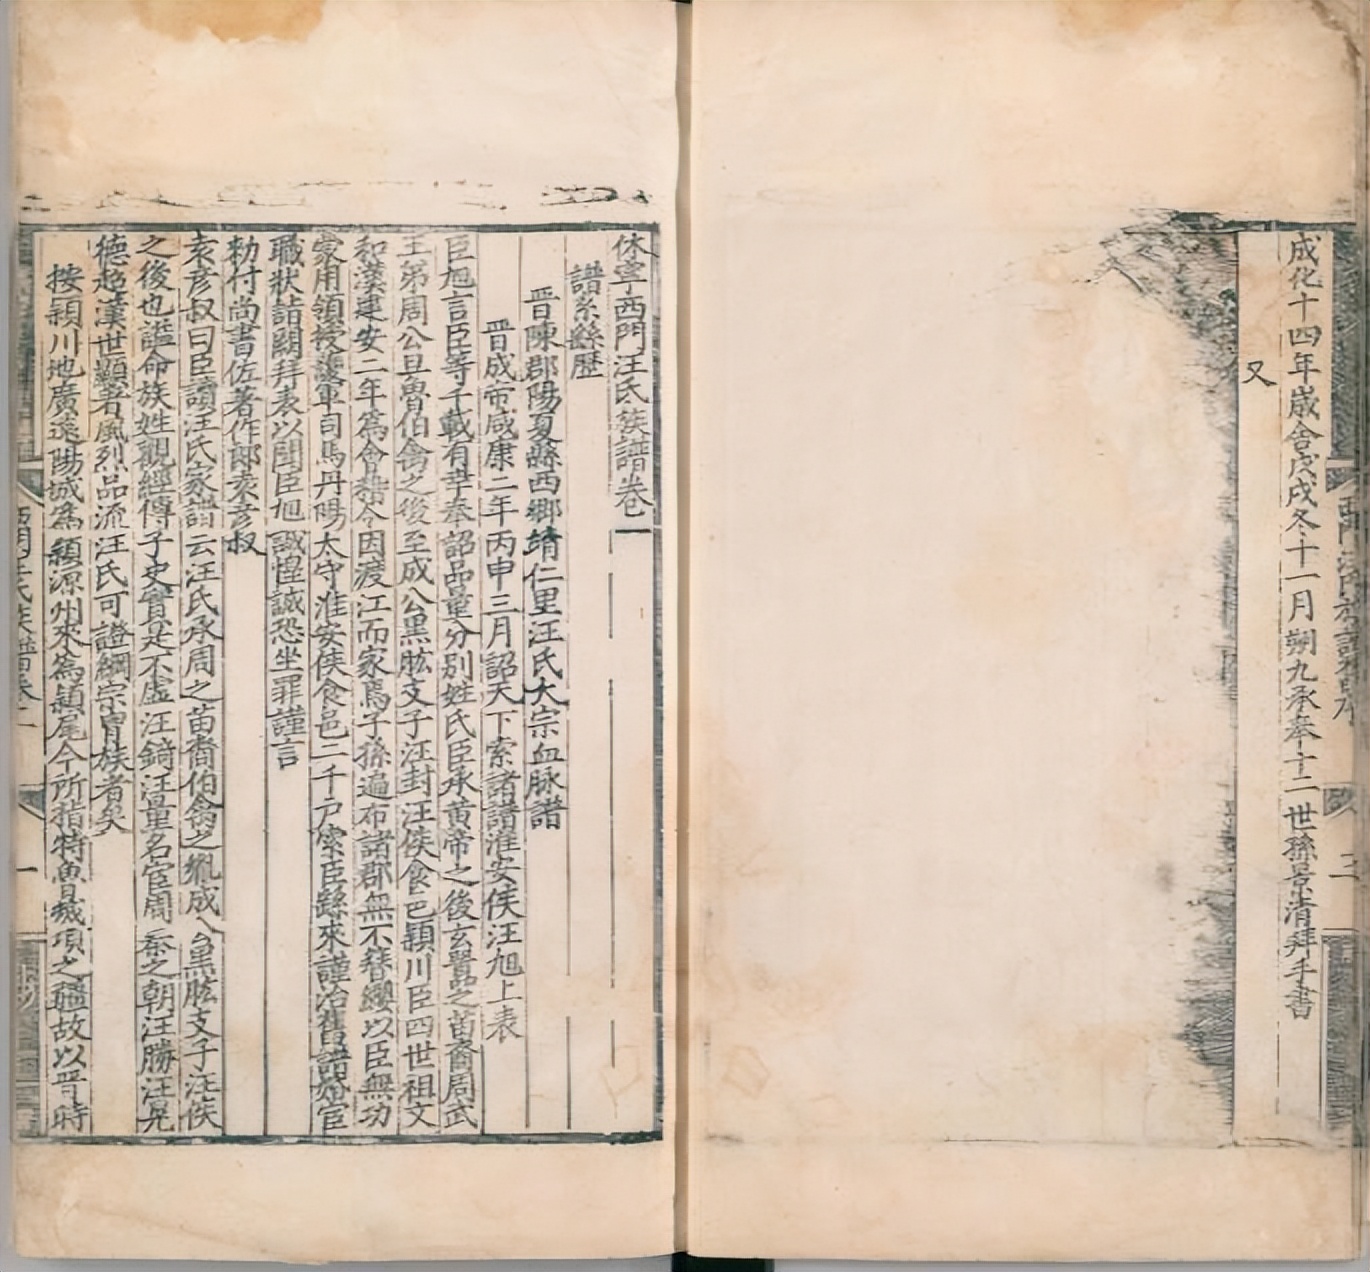 成化十四年歲舍戊戌冬十一月朔九承奉十二世孫景清拜手書
又
休寧西門汪氏族譜卷一
譜系繇歷
晋陳郡陽夏縣西鄉靖仁里汪氏大宗血脉譜
晋成帝咸康二年丙申三月詔天下索諸譜淮安侯汪旭上表
臣旭言臣等千載有幸奉詔品量分别姓氏臣承黄帝之後玄嚣之苗裔周武
王弟周公旦魯伯禽之後至成公黑肱支子汪封汪侯食邑潁川臣四世祖文
和漢建安二年為會稽令因渡江而家焉子孫遍布諸郡無不簪纓以臣無功
蒙用領授護軍司馬丹陽太守淮安侯食邑二千户索臣繇來謹治舊譜婚宦
職狀詣闕拜表以聞臣旭誠惶誠恐坐罪謹言
勑付尚書佐著作郎袁彦叔
袁彦叔曰臣讀汪氏家譜云汪氏承周之苗裔伯禽之胤成公黑肱支子汪侯
之後也謚命族姓觀經傳子史實是不虚汪錡汪量名宦周秦之朝汪勝汪晃
德超漢世顯著風烈品流汪氏可證綱宗胄族者矣
按潁川地廣遠陽城為潁源州來為潁尾今所指特魯國項之疆故以晋時
西門汪氏族譜卷一
一